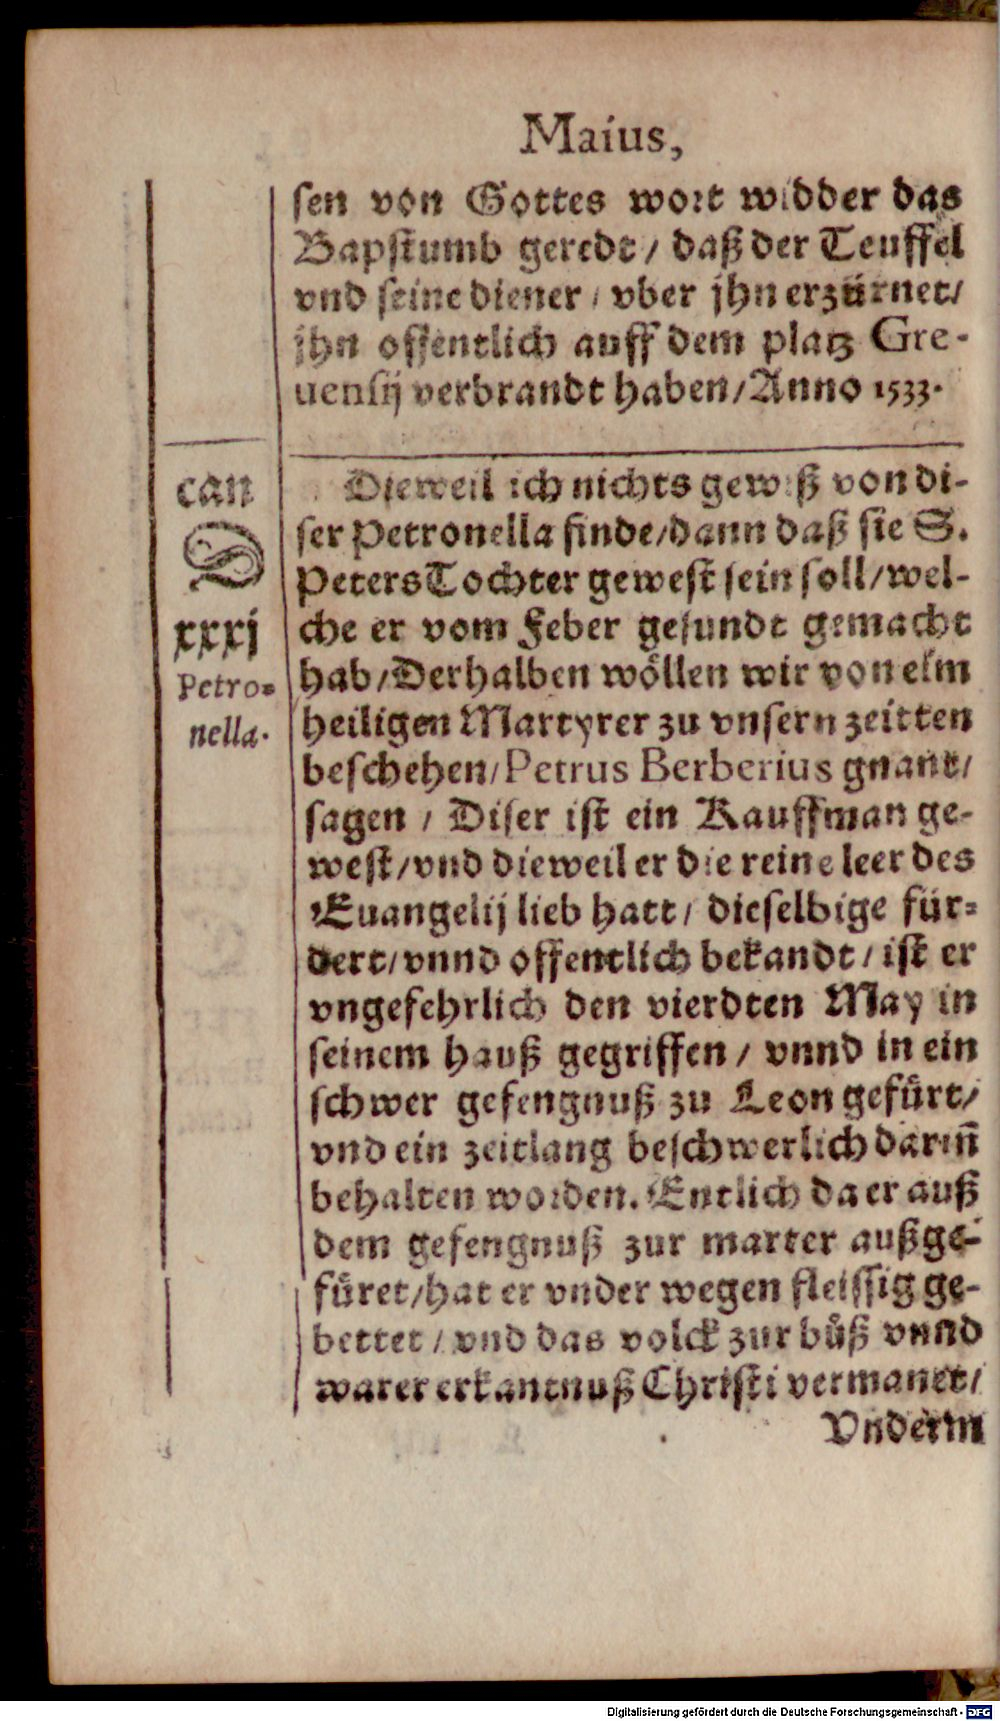 Maius,
sen von Gottes wort widder das
Bapstumb geredt / daß der Teuffel
vnd seine diener / vber jhn erzürnet /
jhn offentlich auff dem platz Gre-
uensij verbrandt haben / Anno 1533.
can
D
xxxj
Petro-
nella.
Dieweil ich nichts gewiß von di-
ser Petronella finde / dann daß sie S.
Peters Tochter gewest sein soll / wel-
che er vom Feber gesundt gemacht
hab / Derhalben wöllen wir von eim
heiligen Martyrer zu vnsern zeitten
beschehen / Petrus Berberius gnant /
sagen / Diser ist ein Kauffman ge-
west / vnd dieweil er die reine leer des
Euangelij lieb hatt / dieselbige für-
dert / vnnd offentlich bekandt / ist er
vngefehrlich den vierdten May in
seinem hauß gegriffen / vnnd in ein
schwer gefengnuß zu Leon gefürt /
vnd ein zeitlang beschwerlich darin̄
behalten worden. Entlich da er auß
dem gefengnuß zur marter außge-
füret / hat er vnder wegen fleissig ge-
bettet / vnd das volck zur bůß vnnd
warer erkantnuß Christi vermanet /
Vnderm
Digitalisierung gefördert durch die Deutsche Forschungsgemeinschaft - DFG